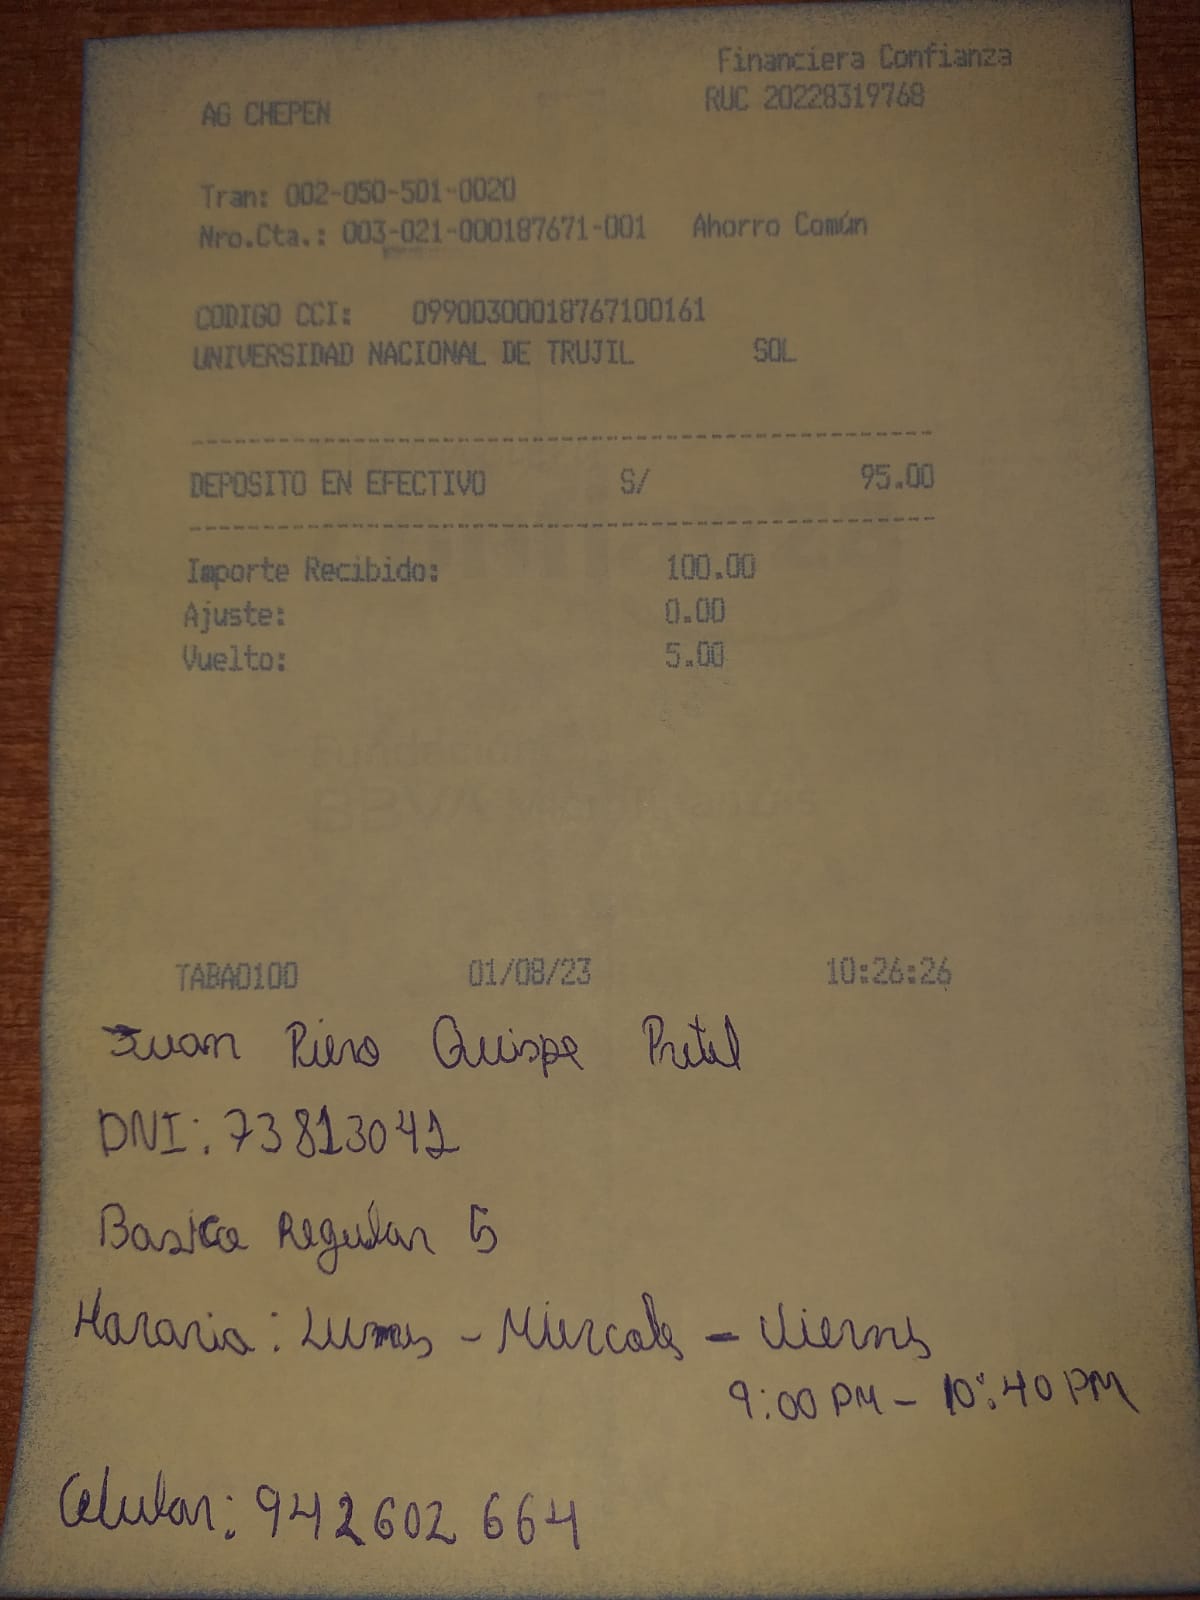 Financiera Confianza
AG CHEPEN
RUC 20228319768
Tran: 002-050-501-0020
Nro.Cta.: 003-021-000187671-001 Ahorro Común
CODIGO CCI: 09900300018767100161
UNIVERSIDAD NACIONAL DE TRUJIL SOL
DEPOSITO EN EFECTIVO S/ 95.00
Importe Recibido: 100.00
Ajuste: 0.00
Vuelto: 5.00
Fundación
BBVA MicroFinanzas
TABA0100 01/08/23 10:26:26
Juan Piero Quispe Pretel
DNI: 73813041
Basica Regular 5
Horario: Lunes - Miercoles - Viernes
9:00 PM - 10:40 PM
Celular: 942602 664